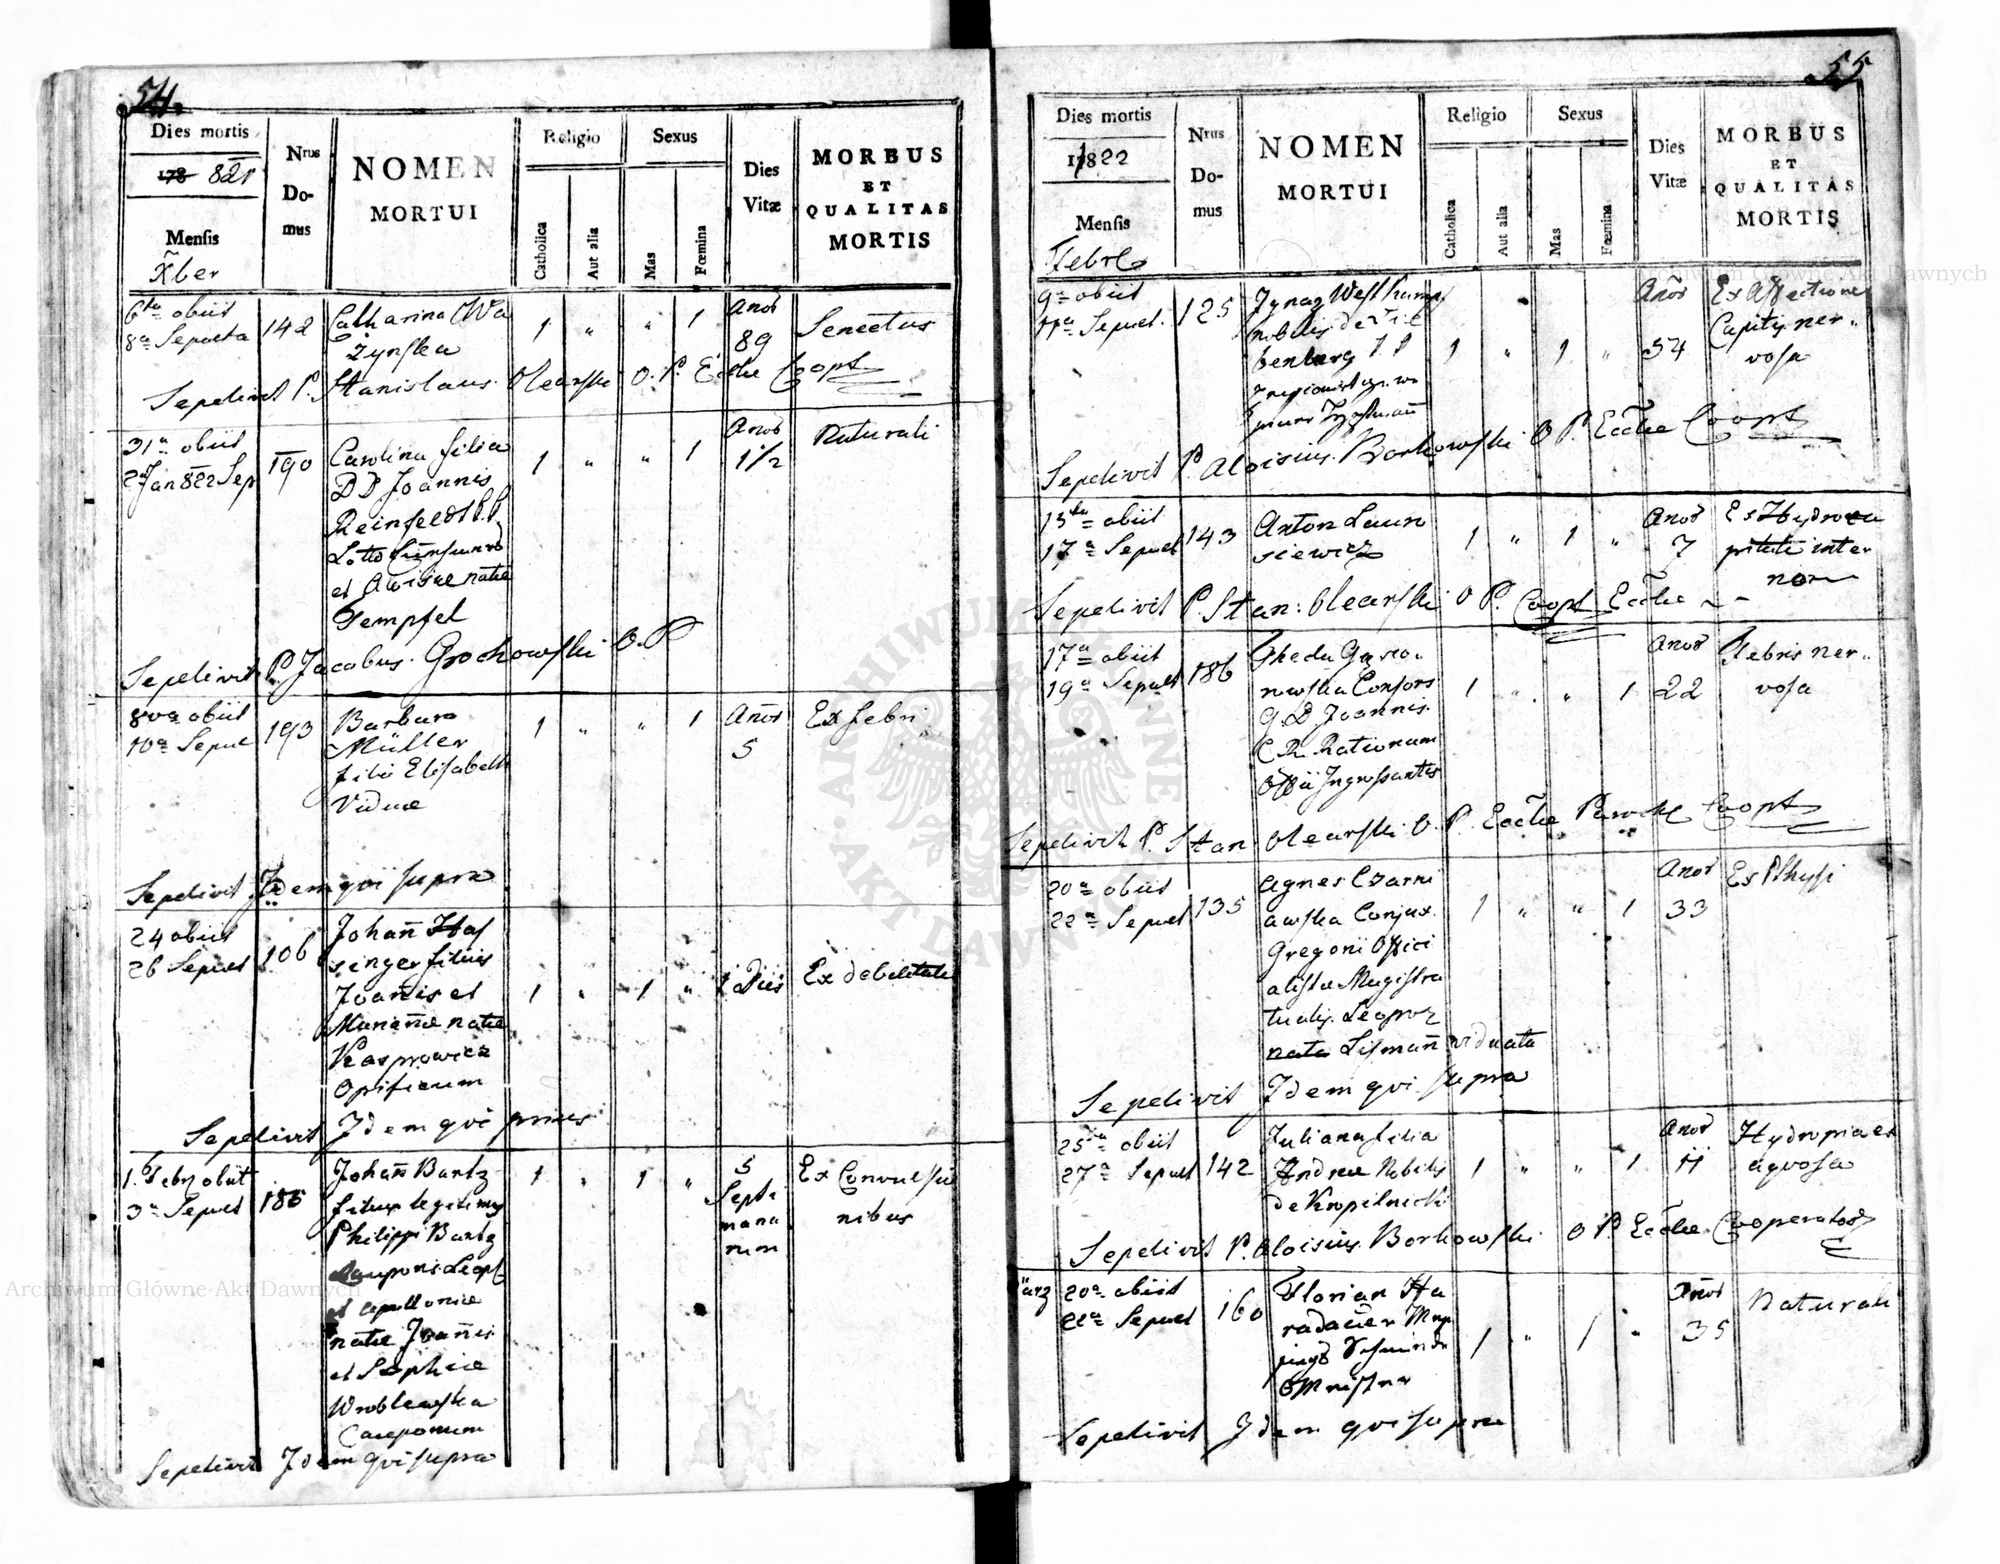 54.
Dies mortis
178 821
Mensis
Xber
Nrus
Do-
mus
NOMEN
MORTUI
Religio
Catholica
Aut alia
Sexus
Mas
Fœmina
Dies
Vitæ
MORBUS
ET
QUALITAS
MORTIS
6ta obiit
8a Sepulta
142
Catharina Wa
żynska
1 " " 1
Anos
89
Senectus
Sepelivit P. Stanislaus Olearski O. P. Eccle Coopt
31a obiit
2a Jan 822 Sep
190
Carolina filia
DD Joannis
Reinfeldt P. P.
Lotto
et Aloisiae natae
Tempfel
1 " " 1
Anos
1 1/2
Naturali
Sepelivit P. Jacobus Grochowski O. P
8va obiit
10a Sepul
193
Barbara
Müller
filia Elisabeth
Viduae
1 " " 1
Años
5
Ex febri
Sepelivit Idem qvi supra
24 obiit
26 Sepult
106
Johañ Has
singer filius
Joañis et
Mariañae natae
Kasprowicz
Opificum
1 " 1 "
Dies
Ex debilitate
Sepelivit Idem qvi prius
1. Febr obiit
3a Sepult
186
Johañ Bartz
filius legitimus
Philippi Bartz
Cauponis Leopl
et Apolloniae
natae Joañis
et Sophiae
Wroblewska
Cauponum
1 " 1 "
5
Septi
mana
rum
Ex Convulsio
nibus
Sepelivit Idem qvi supra
55
Dies mortis
1822
Mensis
Febr
Nrus
Do-
mus
NOMEN
MORTUI
Religio
Catholica
Aut alia
Sexus
Mas
Fœmina
Dies
Vitæ
MORBUS
ET
QUALITAS
MORTIS
9a obiit
11a Sepult.
125
Ignaz
nobilis de
benberg
1 " 1 "
Anos
54
Ex Affectione
Capitis ner-
vosa
Sepelivit P. Aloisius Borkowski O P. Eccle Coopt
15ta obiit
17a Sepult
143
Anton Lauro
siewicz
1 " 1 "
Anos
7
Ex Hydroce
phalite inter
nor
Sepelivit P. Stan: Olearski O P. Coopt Eccle
17a obiit
19a Sepult
186
Thecla
nowska Consors
G. D. Joannis
C. R. Rationum
Offii Ingrossantis
1 " " 1
Anos
22
Febris ner-
vosa
Sepelivit P. Stan Olearski O. P. Eccle Paroch Coopt
20a obiit
22a Sepult
135
Agnes Czarni
awska Conjux
Gregorii Offici
alista Magistra
tualis. Leopol
nata Lismañ viduata
1 " " 1
Anos
33
Ex Pthysi
Sepelivit Idem qvi supra
25ta obiit
27a Sepult
142
Juliana filia
Andreae Nobilis
de Kropelnicki
1 " " 1
Anos
11
Hydropia ex
aqvosa
Sepelivit P. Aloisius Borkowski O P. Eccle Cooperator
März
20a obiit
22a Sepult
160
Florian Ha
radauer
1 " 1 "
Anos
35
Naturali
Sepelivit Idem qvi supra
ARCHIWUM GŁÓWNE AKT DAWNYCH
Archiwum Główne Akt Dawnych
Archiwum Główne Akt Dawnych